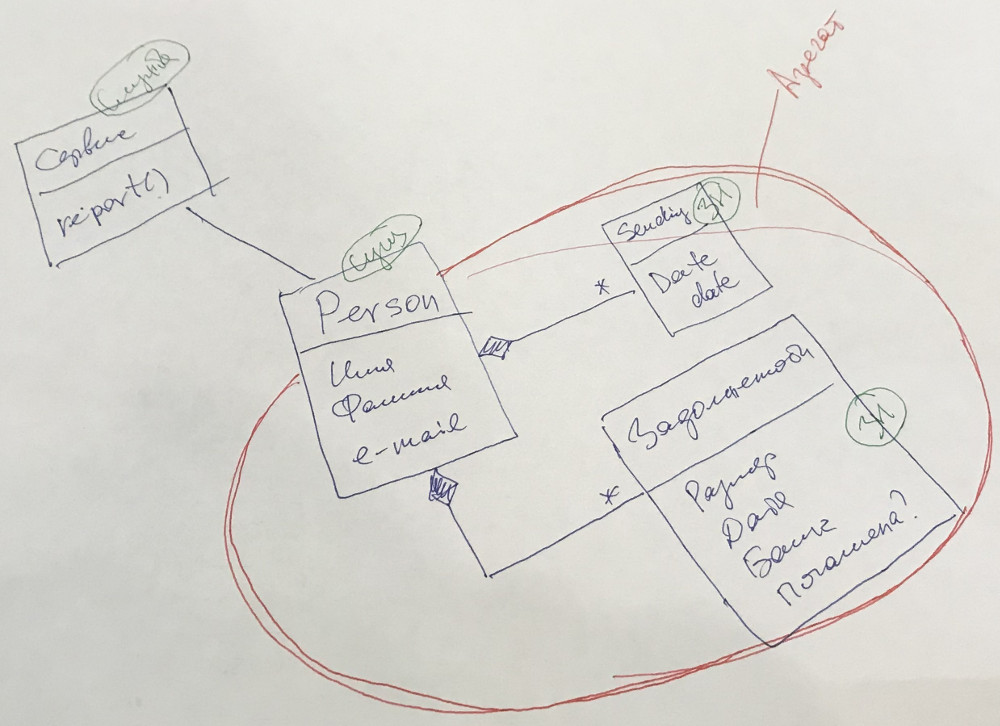 Агрегат
служба
Сервис
report()
сущ
Person
Имя
Фамилия
e-mail
Sending
ЗЛ
Date
date
*
Задолженность
ЗЛ
*
Размер
Дата
Банк
Погашена?